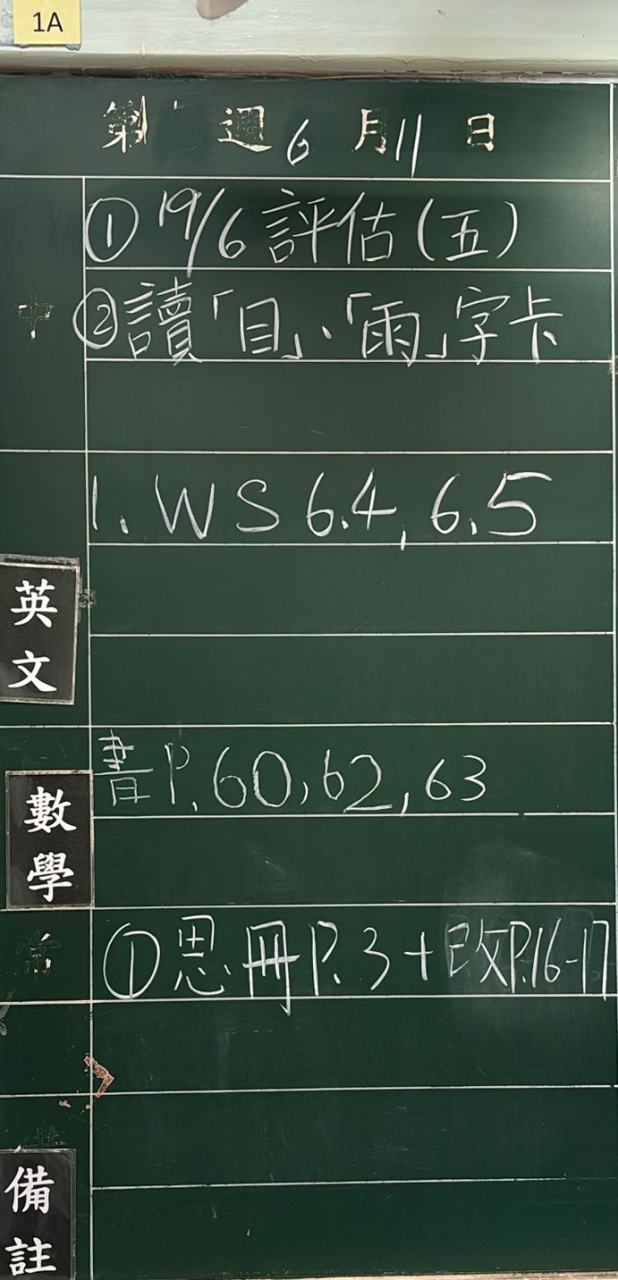 1A
第 週 6 月 11 日
中
① 19/6 評估(五)
② 讀「目」、「雨」字卡
英文
1. WS 6.4, 6.5
數學
書P.60,62,63
常
① 思冊P.3+改P.16-17
備註